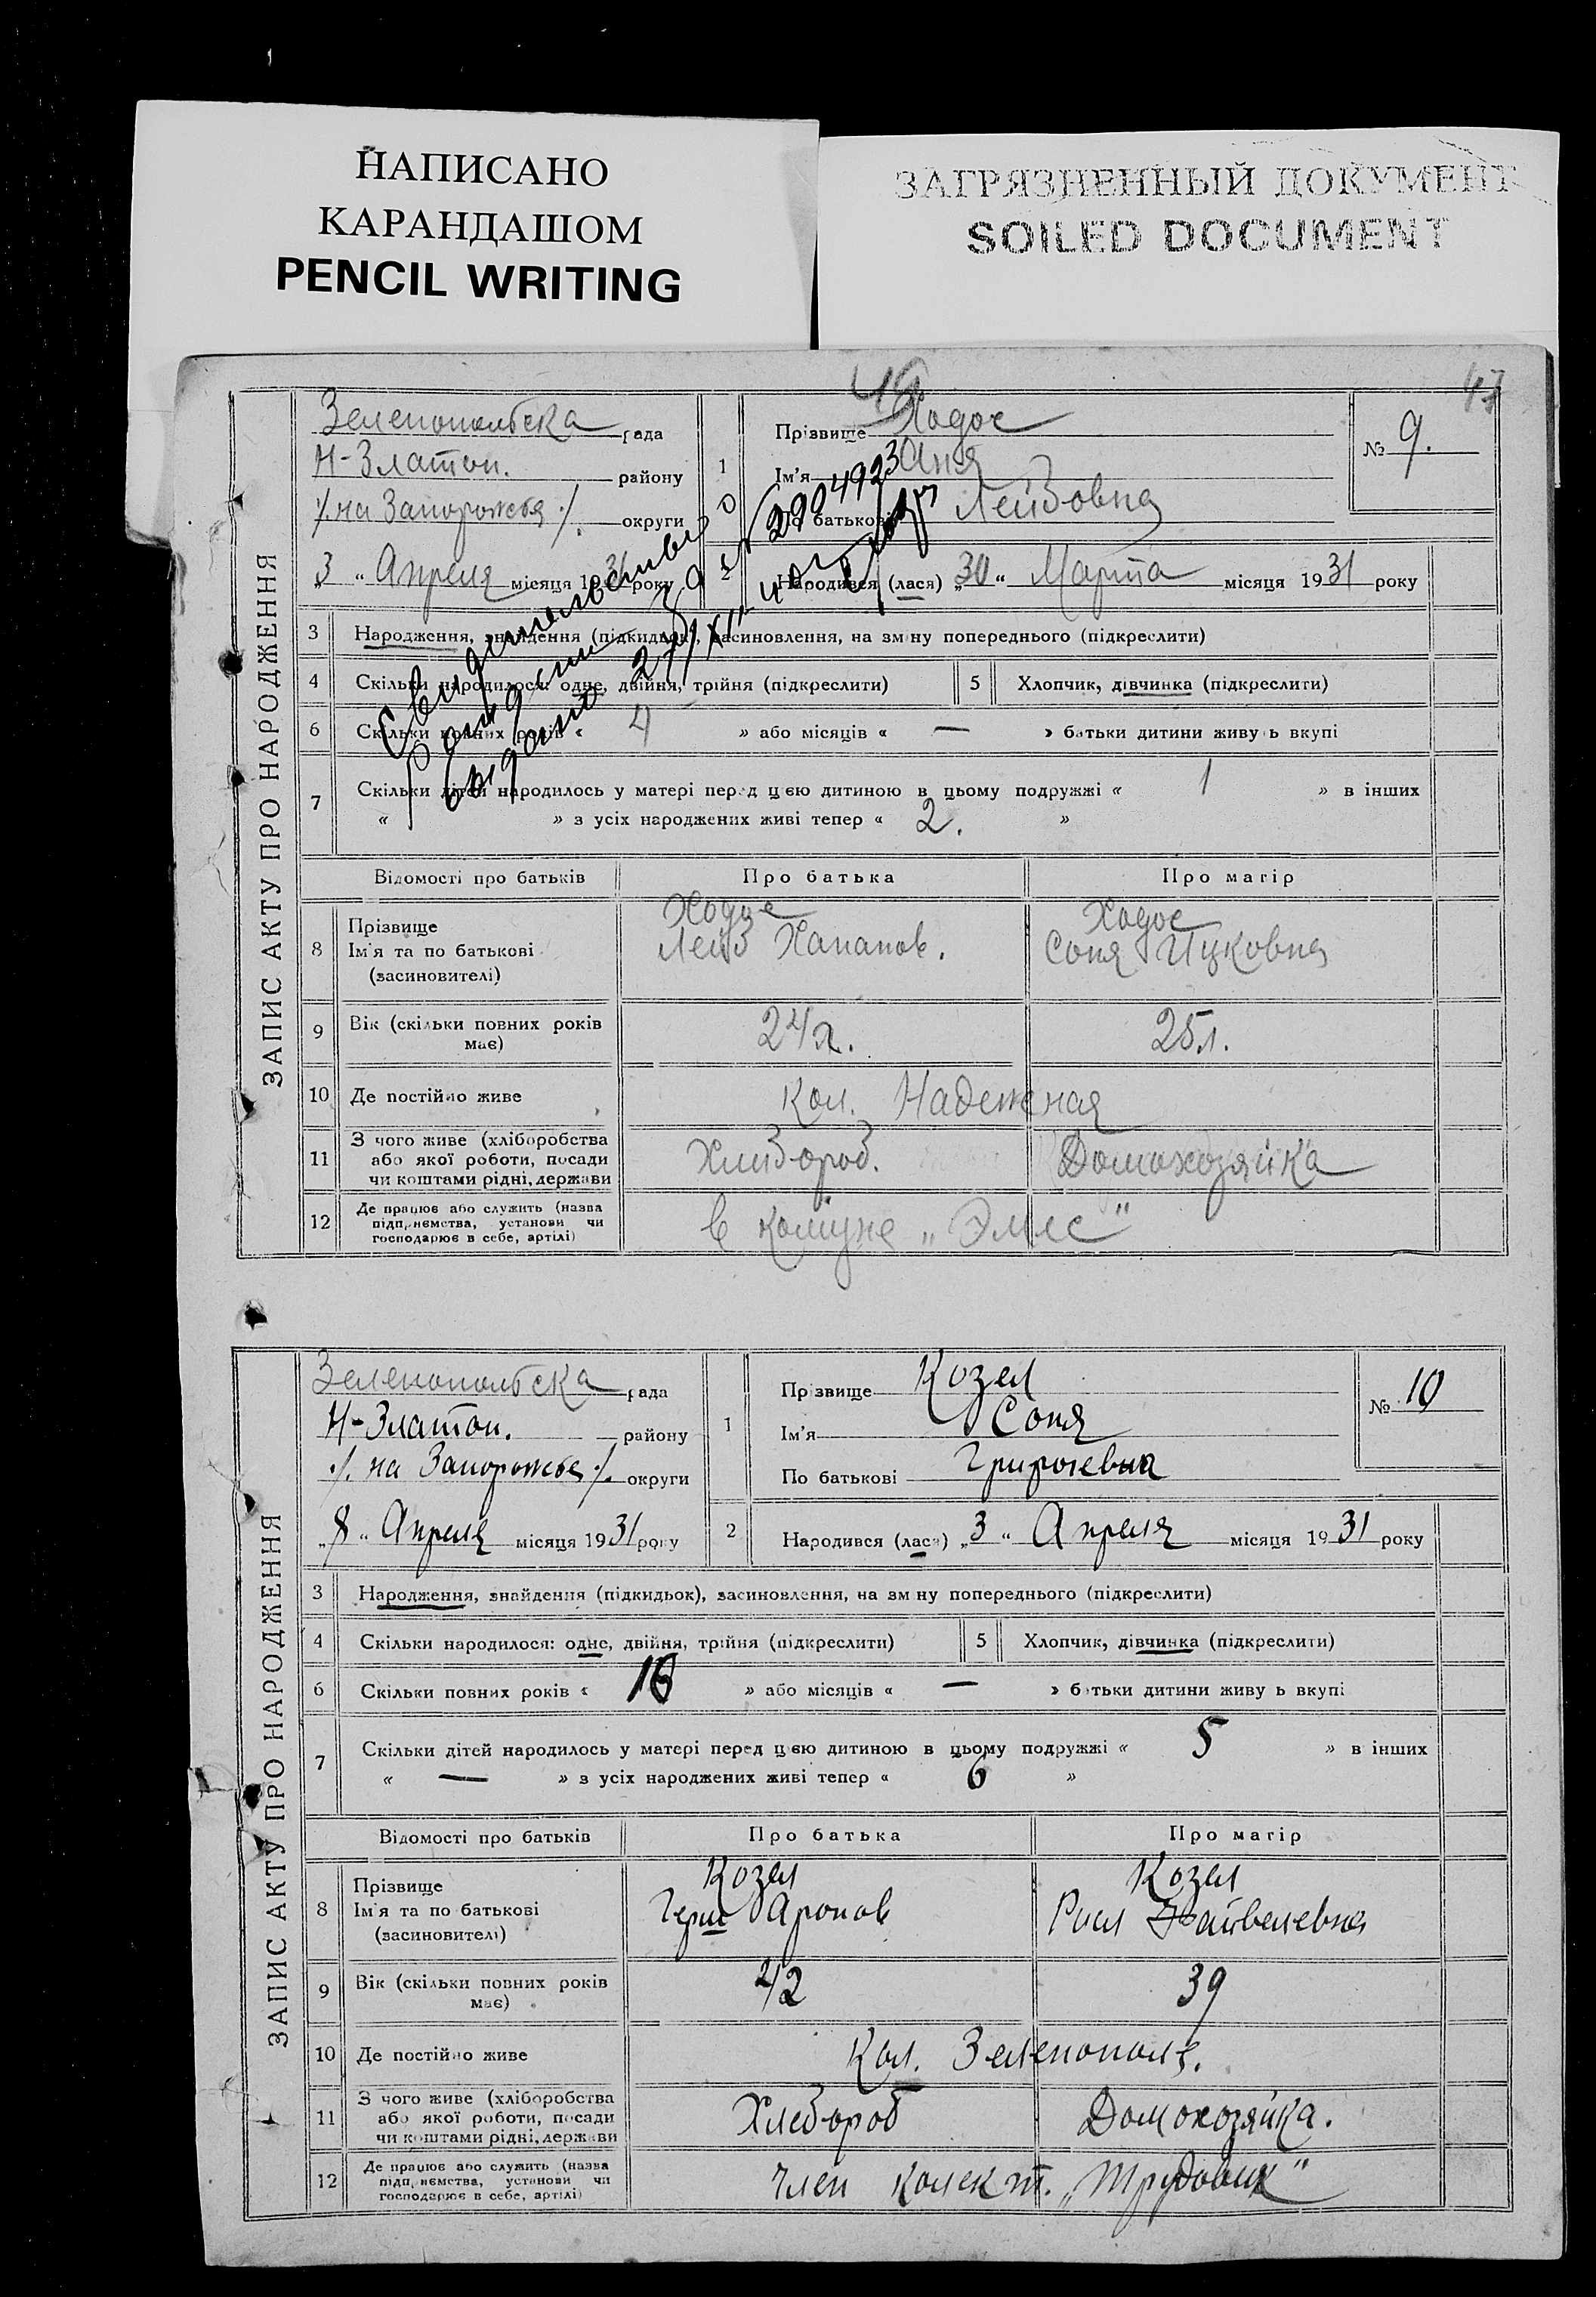 НАПИСАНО
КАРАНДАШОМ
PENCIL WRITING
ЗАГРЯЗНЕННЫЙ ДОКУМЕНТ
SOILED DOCUMENT
47
ЗАПИС АКТУ ПРО НАРОДЖЕННЯ
Зеленопольська рада
Н-Златоп. району
/. на Запорожья /. округи
„3 " Апреля місяця 1931 року
1 Прізвище Ходос
Ім'я Аня
По батькові Лейзовна
№ 9.
2 Народився (лася) „30 " Марта місяця 1931 року
Свидетельство о
рождении за № 290492
выдано 27/XI
3 Народження, знайдення (підкидьок), засиновлення, на зміну попереднього (підкреслити)
4 Скільки народилося: одне, двійня, трійня (підкреслити) 5 Хлопчик, дівчинка (підкреслити)
6 Скільки повних років « 4 » або місяців « — » батьки дитини живуть вкупі
7 Скільки дітей народилось у матері перед цією дитиною в цьому подружжі « 1 » в інших
« » з усіх народжених живі тепер « 2. »
Відомості про батьків Про батька Про матір
8 Прізвище Ходос Ходос
Ім'я та по батькові Лейз Хананов. Соня Ицковна
(засиновителі)
9 Вік (скільки повних років має) 24 л. 25 л.
10 Де постійно живе Кол. Надежная
11 З чого живе (хліборобства або якої роботи, посади чи коштами рідні, держави Хлиборob. Домохозяйка
12 Де працює або служить (назва підприємства, установи чи господарює в себе, артілі) в комуне „Эмес"
ЗАПИС АКТУ ПРО НАРОДЖЕННЯ
Зеленопольська рада
Н-Златоп. району
./. на Запорожье /. округи
„8 " Апреля місяця 1931 року
1 Прізвище Козел
Ім'я Соня
По батькові Григорьевна
№ 10
2 Народився (лася) „3 " Апреля місяця 1931 року
3 Народження, знайдення (підкидьок), засиновлення, на зміну попереднього (підкреслити)
4 Скільки народилося: одне, двійня, трійня (підкреслити) 5 Хлопчик, дівчинка (підкреслити)
6 Скільки повних років « 16 » або місяців « — » батьки дитини живуть вкупі
7 Скільки дітей народилось у матері перед цією дитиною в цьому подружжі « 5 » в інших
« — » з усіх народжених живі тепер « 6 »
Відомості про батьків Про батька Про матір
8 Прізвище Козел Козел
Ім'я та по батькові Герш Аронов Рися Файвелевна
(засиновителі)
9 Вік (скільки повних років має) 42 39
10 Де постійно живе Кол. Зеленополе.
11 З чого живе (хліборобства або якої роботи, посади чи коштами рідні, держави Хлебороб Домохозяйка.
12 Де працює або служить (назва підприємства, установи чи господарює в себе, артілі) член колект. „Трудовик"